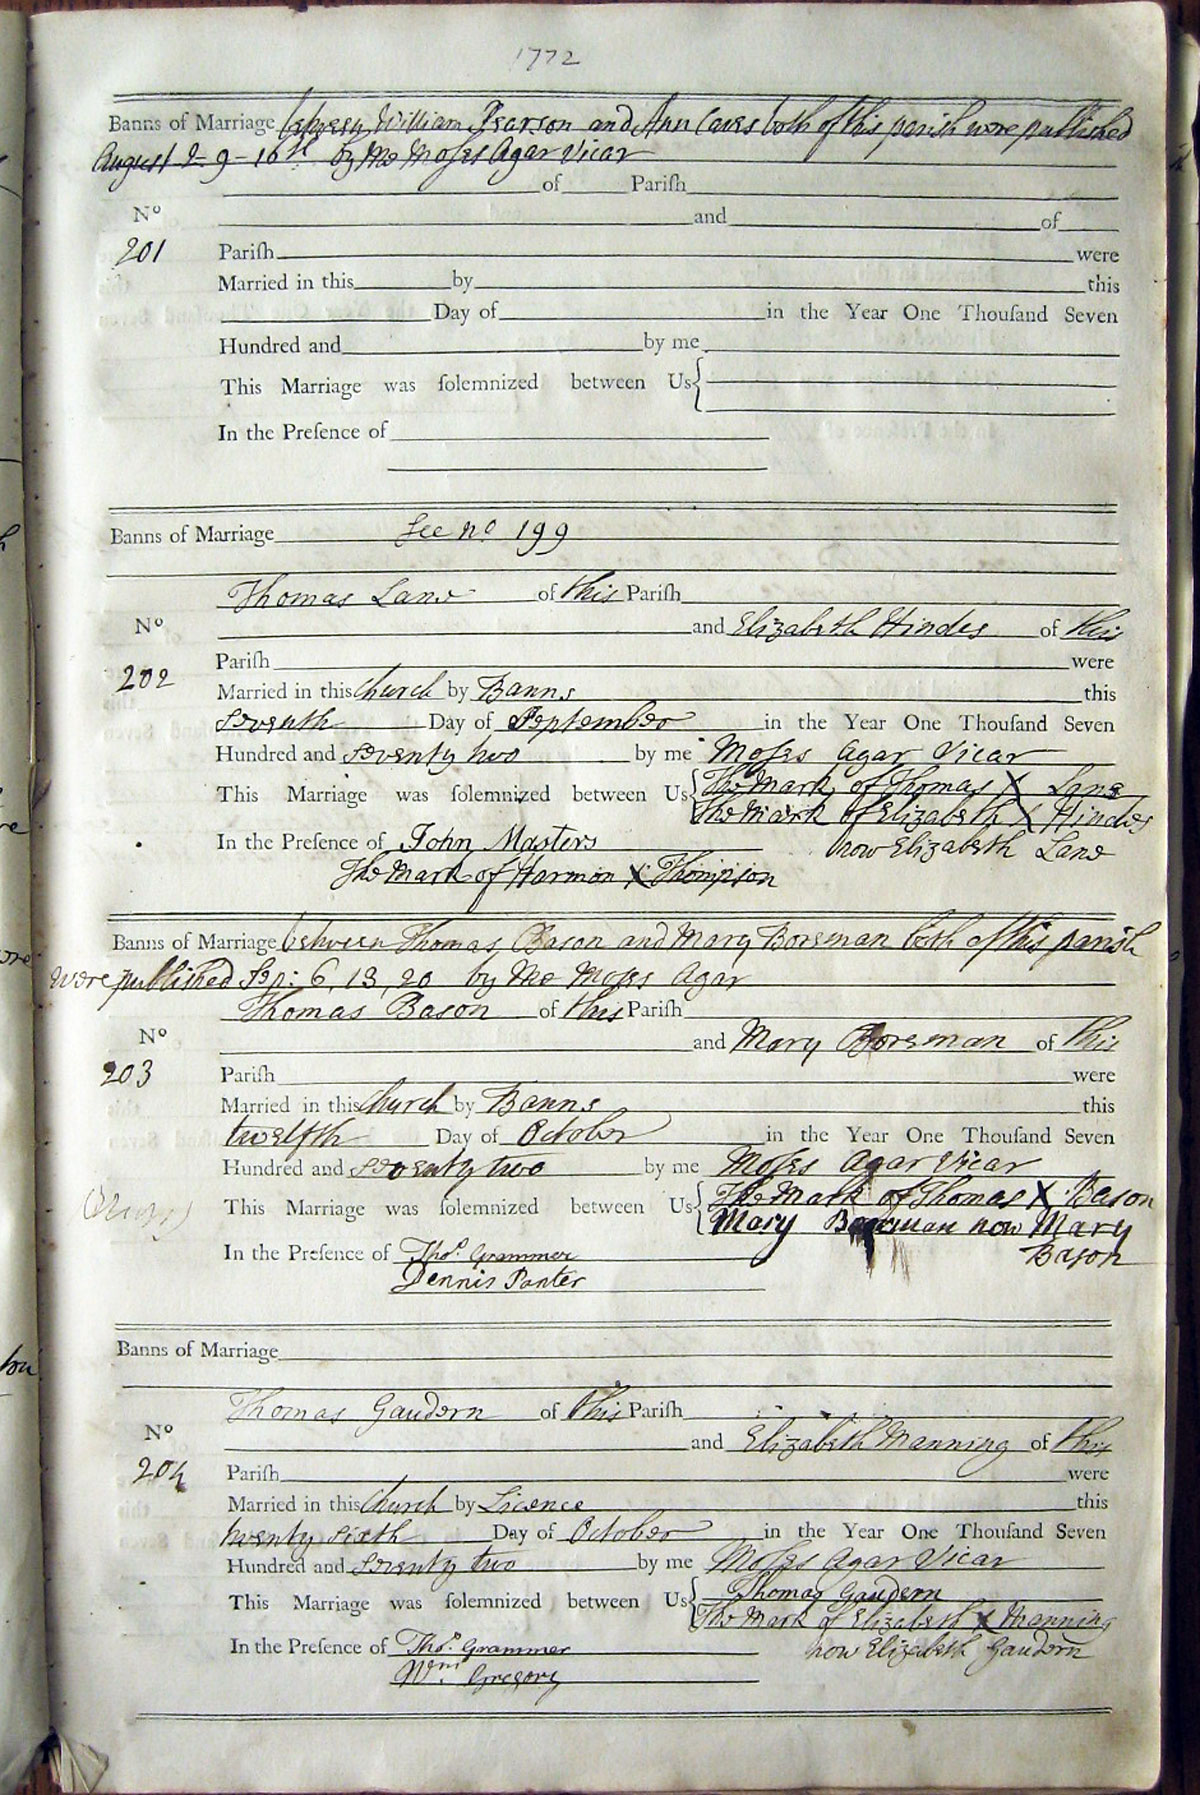 1772
Banns of Marriage between William Pearson and Ann Caves both of this parish were published
August 2 - 9 - 16th by Me Moses Agar Vicar
of Parish
No and of
201 Pariſh were
Married in this by this
Day of in the Year One Thouſand Seven
Hundred and by me
This Marriage was ſolemnized between Us
In the Preſence of
Banns of Marriage See no 199
Thomas Lane of this Pariſh
No and Elizabeth Hindes of this
202 Pariſh were
Married in this Church by Banns this
seventh Day of September in the Year One Thouſand Seven
Hundred and seventy two by me Moſes Agar Vicar
This Marriage was ſolemnized between Us The Mark of Thomas X Lane
The Mark of Elizabeth X Hindes
In the Preſence of John Masters now Elizabeth Lane
The Mark of Harmon X Thompson
Banns of Marriage between Thomas Bason and Mary Boreman both of this parish
were published Sep: 6, 13, 20 by Me Moſes Agar
Thomas Bason of this Pariſh
No and Mary Boreman of this
203 Pariſh were
Married in this Church by Banns this
twelfth Day of October in the Year One Thouſand Seven
Hundred and seventy two by me Moſes Agar Vicar
This Marriage was ſolemnized between Us The Mark of Thomas X Bason
Mary now Mary
Bason
In the Preſence of Thos. Grammer
Dennis Panter
Banns of Marriage
Thomas Gaudern of this Pariſh
No and Elizabeth Manning of this
204 Pariſh were
Married in this Church by Licence this
twenty sixth Day of October in the Year One Thouſand Seven
Hundred and seventy two by me Moſes Agar Vicar
This Marriage was ſolemnized between Us Thomas Gaudern
The Mark of Elizabeth X Manning
In the Preſence of Thos. Grammer now Elizabeth Gaudern
Wm. Gregory